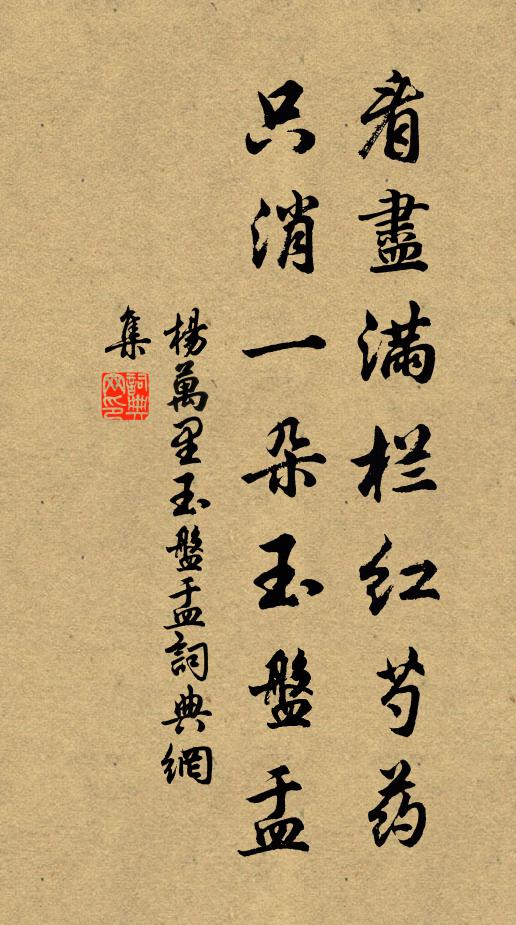 看盡滿栏红芍药
只消一朵玉盤盂
楊萬里玉盤盂詞典網
集
詞典网印